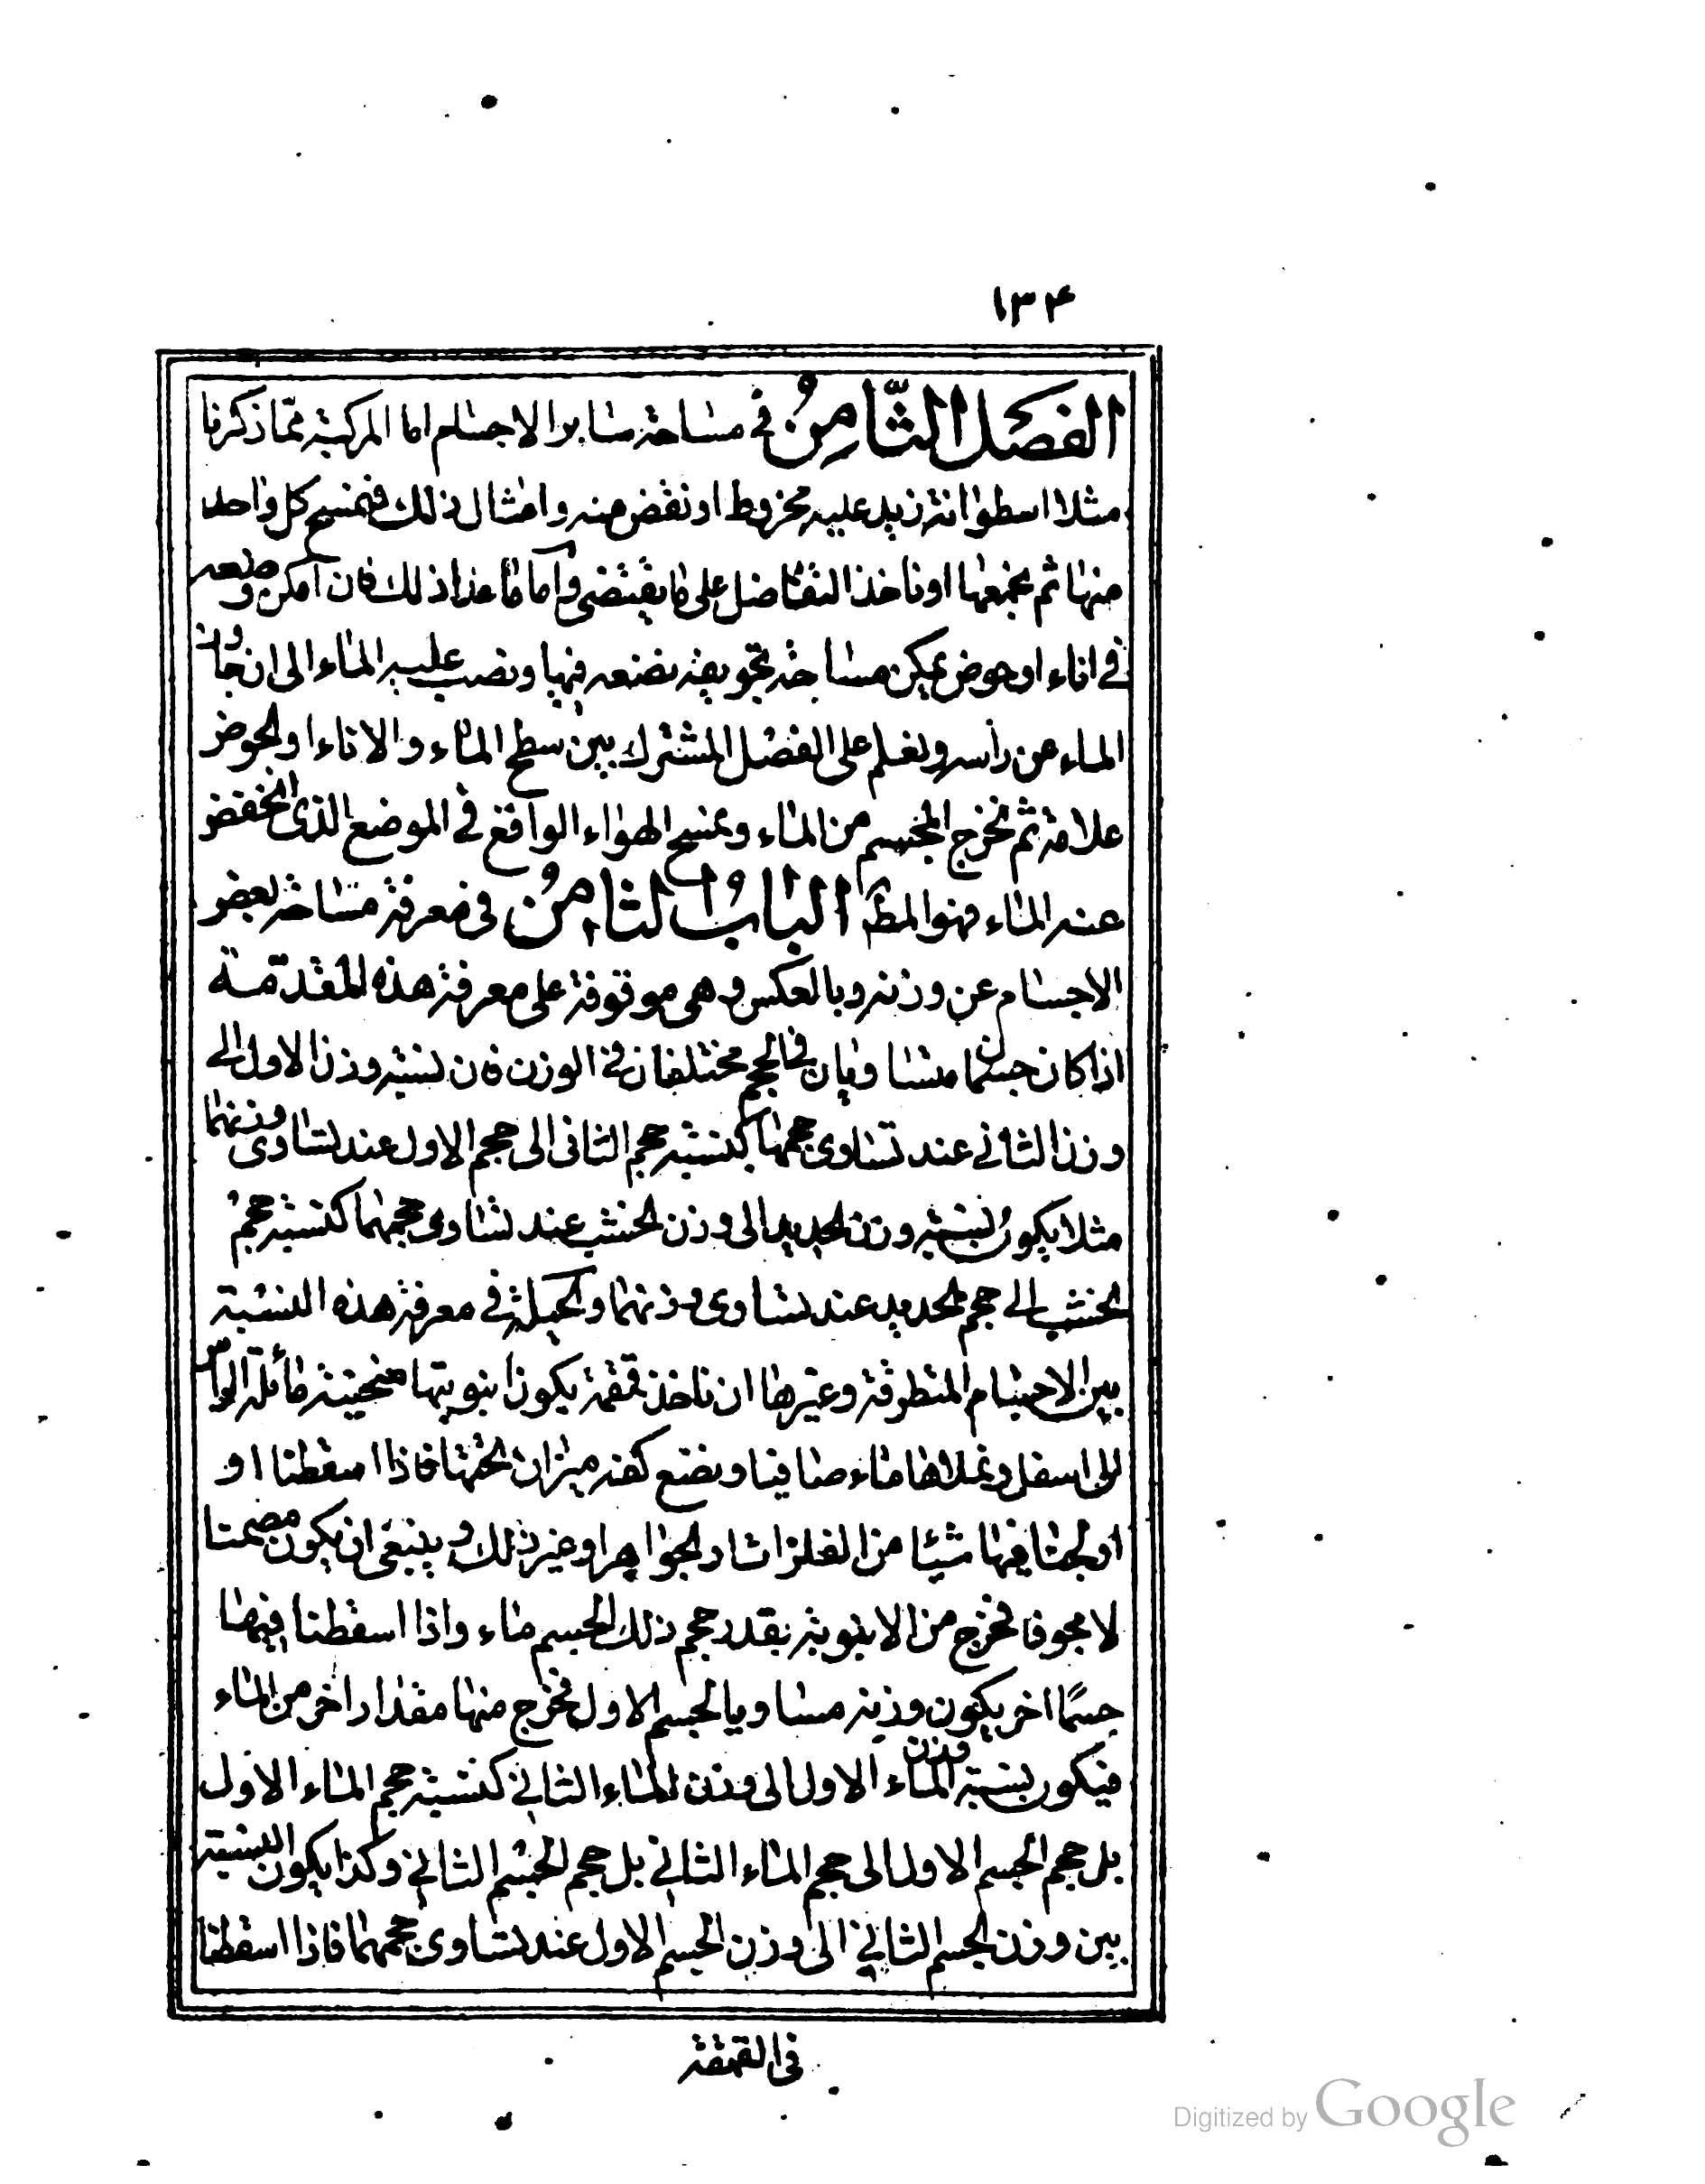 ١٣۴
الفصل الثامن في مساحة سائر الاجسام اما المركبة مما ذكرنا
مثلا اسطوانة زيد عليه مخروط او نقض منه وامثال ذلك فنمسح كل واحد
منها ثم نجمعها او ناخذ التفاضل على ما يقتضى وأما ما عدا ذلك فان امكن وضعه
في اناء او حوض يمكن مساحة تجويفه نضعه فيها ونصب عليه الماء الى ان جاوز
الماء من رأسه ونعلم على الفصل المشترك بين سطح الماء والاناء او الحوض
علامة ثم نخرج المجسم من الماء ونمسح الهواء الواقع في الموضع الذى انخفض
عنه الماء فهو المط الباب الثامن في معرفة مساحة بعض
الاجسام عن وزنه وبالعكس وهى موقوفة على معرفة هذه المقدمة
اذا كان جسمان متساويان في الحجم مختلفان في الوزن فان نسبة وزن الاول الى
وزن الثاني عند تساوى حجمها كنسبة حجم الثانى الى حجم الاول عند تساوى وزنهما
مثلا يكون نسبة وزن الحديد الى وزن الخشب عند تساوى حجمهما كنسبة حجم
الخشب الى حجم الحديد عند تساوى وزنهما والحيلة في معرفة هذه النسبة
بين الاجسام المنطرقة وغيرها ان ناخذ قمقمة يكون انبوبتها منحنية مائلة الراس
الى اسفل ونملاها ماء صافيا ونضع كفة ميزان تحتها فاذا اسقطنا او
اولجنا فيها شيئا من الفلزات او الجواهر او غير ذلك وينبغى ان يكون مصمتا
لا مجوفا فخرج من الانبوبة بقدر حجم ذلك الجسم ماء واذا اسقطنا فيها
جسمًا اخر يكون وزنه مساويا لجسم الاول فخرج منها مقدار اخر من الماء
فيكون نسبة وزن الماء الاول الى وزن الماء الثاني كنسبة حجم الماء الاول
بل حجم الجسم الاول الى حجم الماء الثاني بل حجم الجسم الثاني وكذا يكون النسبة
بين وزن الجسم الثاني الى وزن الجسم الاول عند تساوى حجمهما فاذا اسقطنا
في القمقمة
Digitized by Google